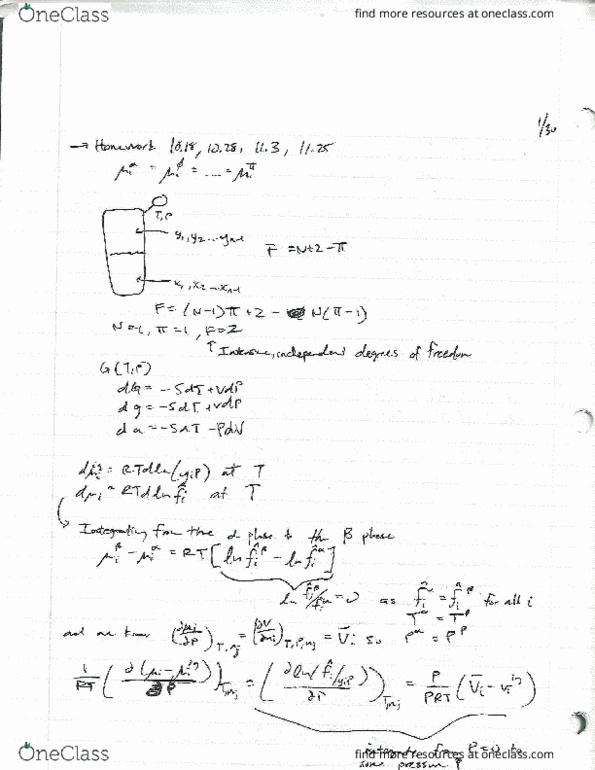 OneClass
find more resources at oneclass.com
1/30
→ Homework 10.18, 10.28, 11.3, 11.25
μᵢ^α = μᵢ^β = .... = μᵢ^π
T,P
y₁, y₂ ... yₙ₋₁
F = N+2-π
x₁, x₂ ... xₙ₋₁
F = (N-1)π + 2 - N(π-1)
N=1, π=1, F=2
↑ Intensive, independent degrees of freedom
G(T,P)
dG = -SdT + VdP
dg = -SdT + vdP
da = -SdT - PdV
dμᵢ^ig = RTdln(yᵢP) at T
dμᵢ = RTdln f̂ᵢ at T
Integrating from the α phase to the β phase
μᵢ^β - μᵢ^α = RT[ln f̂ᵢ^β - ln f̂ᵢ^α]
ln f̂ᵢ^β/f̂ᵢ^α = 0 as f̂ᵢ^α = f̂ᵢ^β for all i
T^α = T^β
and we know (∂μᵢ/∂P)_T,nj = (∂V/∂nᵢ)_T,P,nj = V̄ᵢ so P^α = P^β
1/RT (∂(μᵢ-μᵢ^ig)/∂P)_T,nj = (∂ln(f̂ᵢ/yᵢP)/∂P)_T,nj = P/PRT (V̄ᵢ - vᵢ^ig)
OneClass
find more resources at oneclass.com
some pressure P